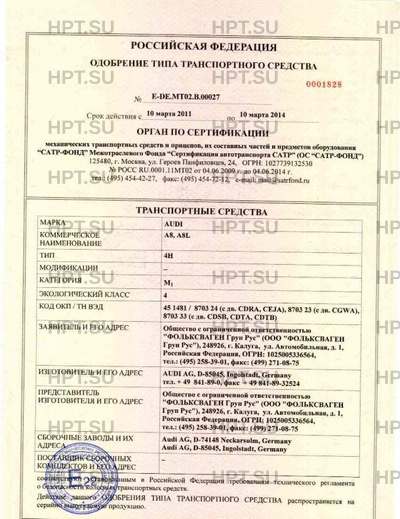 HPT.SU HPT.SU HPT.SU
РОССИЙСКАЯ ФЕДЕРАЦИЯ
ОДОБРЕНИЕ ТИПА ТРАНСПОРТНОГО СРЕДСТВА
0001828
№ E-DE.MT02.B.00027
Срок действия с 10 марта 2011 по 10 марта 2014
ОРГАН ПО СЕРТИФИКАЦИИ
механических транспортных средств и прицепов, их составных частей и предметов оборудования
"САТР-ФОНД" Межотраслевого Фонда "Сертификация автотранспорта САТР" (ОС "САТР-ФОНД")
125480, г. Москва, ул. Героев Панфиловцев, 24, ОГРН: 1027739132530
№ РОСС RU.0001.11МТ02 от 04.06.2009 г. до 04.06.2014 г.
тел.: (495) 454-42-27, факс: (495) 454-72-12, e-mail: mail@satrfond.ru
ТРАНСПОРТНЫЕ СРЕДСТВА
МАРКА AUDI
КОММЕРЧЕСКОЕ A8, A8L
НАИМЕНОВАНИЕ
ТИП 4H
МОДИФИКАЦИИ –
КАТЕГОРИЯ M1
ЭКОЛОГИЧЕСКИЙ КЛАСС 4
КОД ОКП / ТН ВЭД 45 1481 / 8703 24 (с дв. CDRA, CEJA), 8703 23 (с дв. CGWA),
8703 33 (с дв. CDSB, CDTA, CDTB)
ЗАЯВИТЕЛЬ И ЕГО АДРЕС Общество с ограниченной ответственностью
"ФОЛЬКСВАГЕН Груп Рус" (ООО "ФОЛЬКСВАГЕН
Груп Рус"), 248926, г. Калуга, ул. Автомобильная, д. 1,
Российская Федерация, ОГРН: 1025005336564,
тел.: (495) 258-39-01, факс: (499) 271-08-75
ИЗГОТОВИТЕЛЬ И ЕГО АДРЕС AUDI AG, D-85045, Ingolstadt, Germany
тел. + 49 841-89-0, факс + 49 841-89-32524
ПРЕДСТАВИТЕЛЬ Общество с ограниченной ответственностью
ИЗГОТОВИТЕЛЯ И ЕГО АДРЕС "ФОЛЬКСВАГЕН Груп Рус" (ООО "ФОЛЬКСВАГЕН
Груп Рус"), 248926, г. Калуга, ул. Автомобильная, д. 1,
Российская Федерация, ОГРН: 1025005336564,
тел.: (495) 258-39-01, факс: (499) 271-08-75
СБОРОЧНЫЕ ЗАВОДЫ И ИХ Audi AG, D-74148 Neckarsulm, Germany
АДРЕСА Audi AG, D-85045, Ingolstadt, Germany
ПОСТАВЩИК СБОРОЧНЫХ –
КОМПЛЕКТОВ И ЕГО АДРЕС
соответствуют установленным в Российской Федерации требованиям технического регламента
о безопасности колесных транспортных средств.
Действие данного ОДОБРЕНИЯ ТИПА ТРАНСПОРТНОГО СРЕДСТВА распространяется на
серийно выпускаемую продукцию.